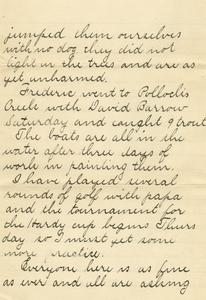 jumped them ourselves
with no dog they did not
light in the trees and are as
yet unharmed.
Frederic went to Pollocks
Creek with David Barrow
Saturday and caught 9 trout
The boats are all in the
water after three days of
work in painting them.
I have played several
rounds of golf with papa
and the tournament for
the Hardy cup begins Thurs
day so I must get some
more practice.
Everyone here is as fine
as ever and all are asking